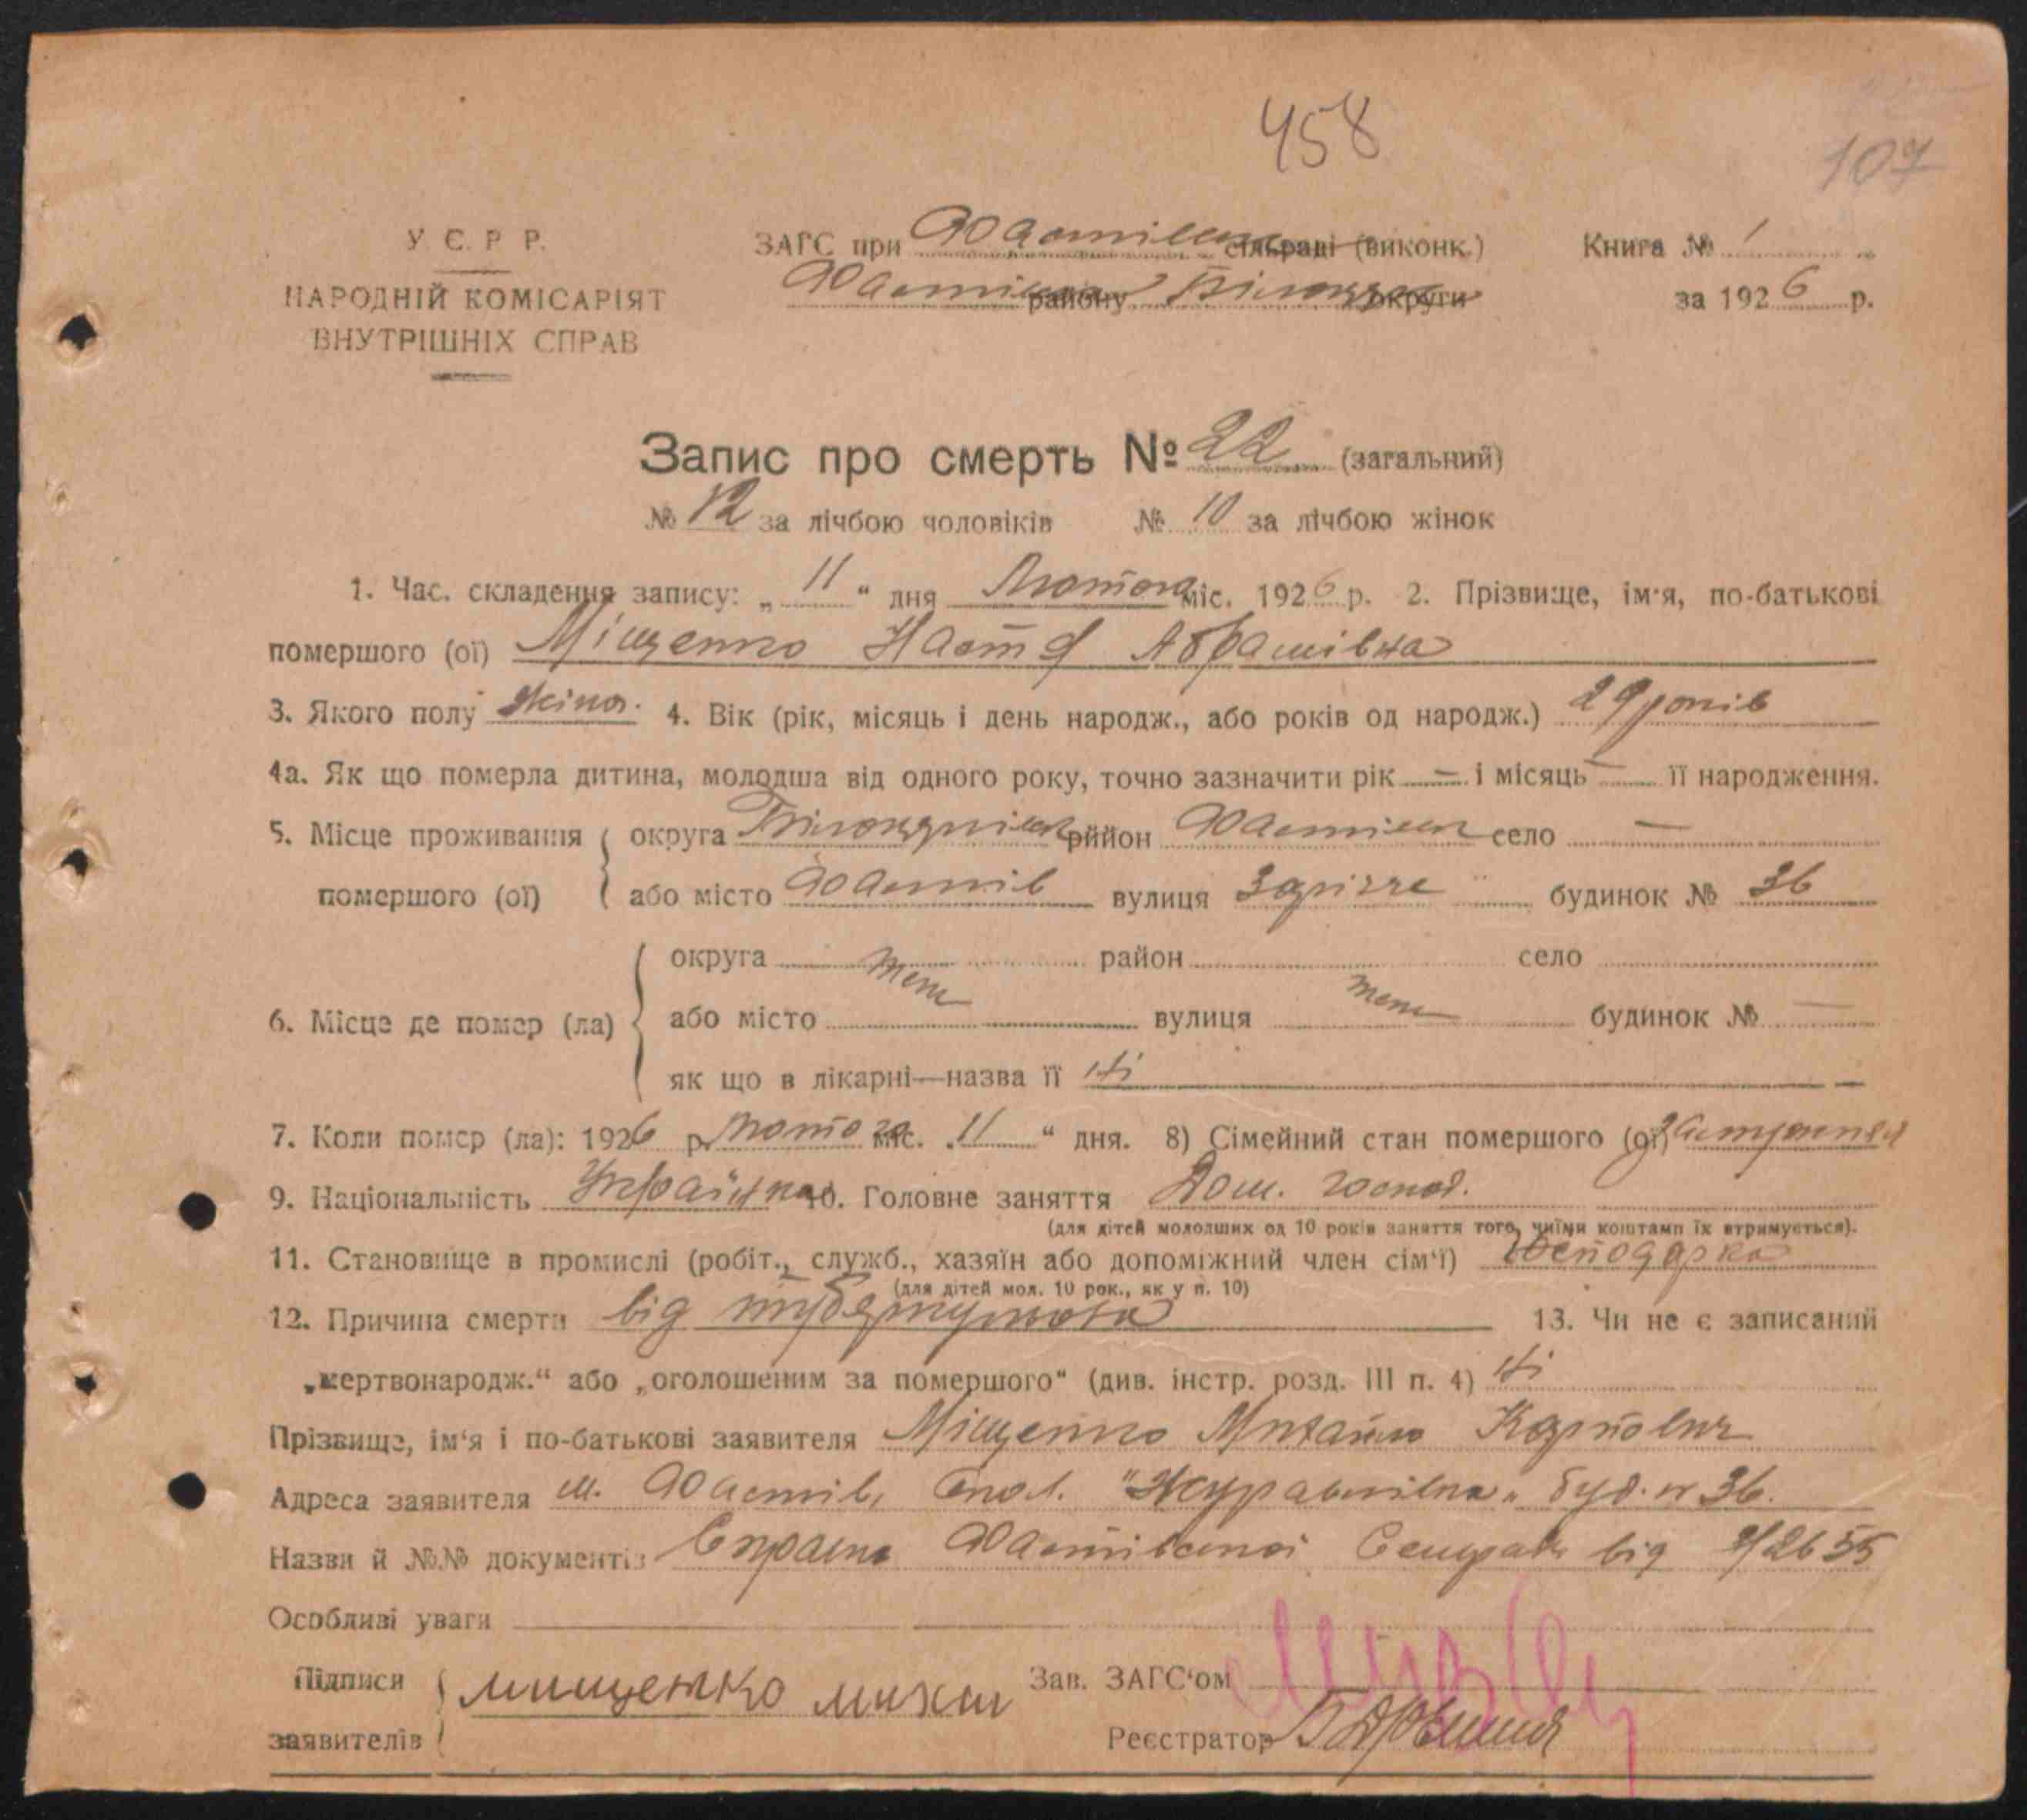 458
107
У. С. Р. Р.
НАРОДНІЙ КОМІСАРІЯТ
ВНУТРІШНІХ СПРАВ
ЗАГС при Фастівськ сільраді (виконк.)
Фастівськ району Білоцерк округи
Книга № 1
за 1926 р.
Запис про смерть № 22 (загальний)
№ 12 за лічбою чоловіків № 10 за лічбою жінок
1. Час. складення запису: „ 11 “ дня Лютого міс. 1926 р. 2. Прізвище, ім'я, по-батькові
помершого (ої) Міщенко Настя Абрамівна
3. Якого полу жіноч. 4. Вік (рік, місяць і день народж., або років од народж.) 29 років
4а. Як що померла дитина, молодша від одного року, точно зазначити рік — і місяць — її народження.
5. Місце проживання помершого (ої)
округа Білоцерківськ район Фастівськ село —
або місто Фастів вулиця Зарічче будинок № 36
6. Місце де помер (ла)
округа теж район село
або місто вулиця теж будинок № —
як що в лікарні—назва її ні —
7. Коли помер (ла): 1926 р. Лютого міс. „ 11 “ дня. 8) Сімейний стан помершого (ої)
9. Національність Українка 10. Головне заняття Дом. господ.
(для дітей молодших од 10 років заняття того, чиїми коштами їх втримується).
11. Становище в промислі (робіт., служб., хазяїн або допоміжний член сім'ї) Господарка
(для дітей мол. 10 рок., як у п. 10)
12. Причина смерти від туберкульоза 13. Чи не є записаний
„мертвонародж.“ або „оголошеним за помершого“ (див. інстр. розд. III п. 4) ні
Прізвище, ім'я і по-батькові заявителя Міщенко Михайло Карпович
Адреса заявителя м. Фастів, "Журавлівка" буд. № 36.
Назви й №№ документів Фастівської від
Особливі уваги
Підписи заявителів мищенко михаи
Зав. ЗАГС'ом
Реєстратор